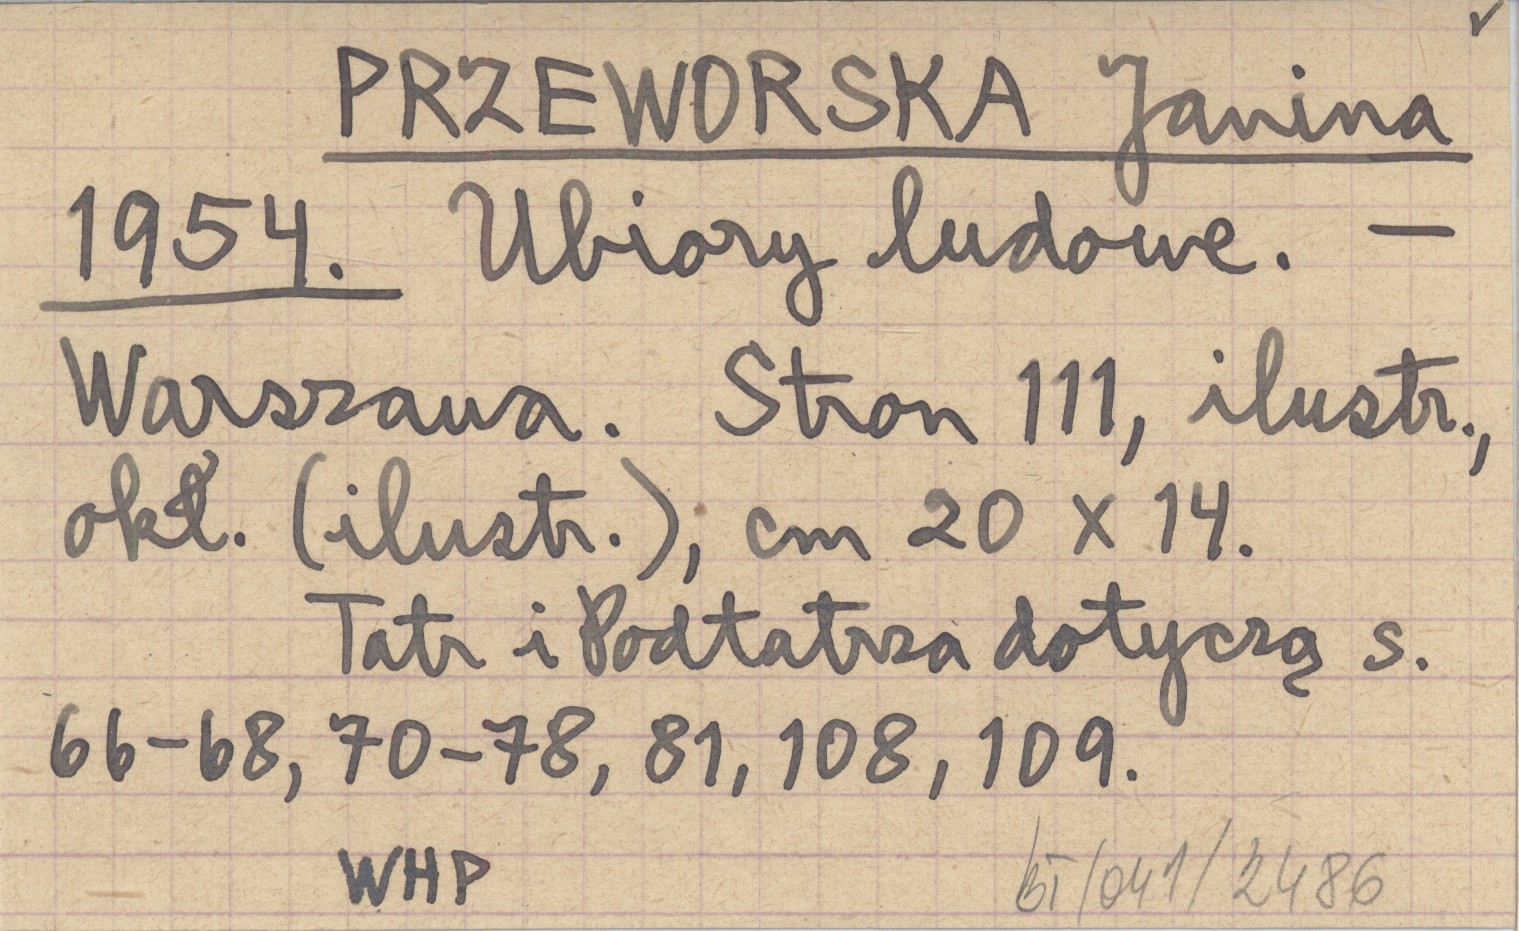 PRZEWORSKA Janina
1954. Ubiory ludowe. —
Warszawa. Stron 111, ilustr.,
okł. (ilustr.), cm 20 x 14.
Tatr i Podtatrza dotyczą s.
66-68, 70-78, 81, 108, 109.
WHP
/041/2486